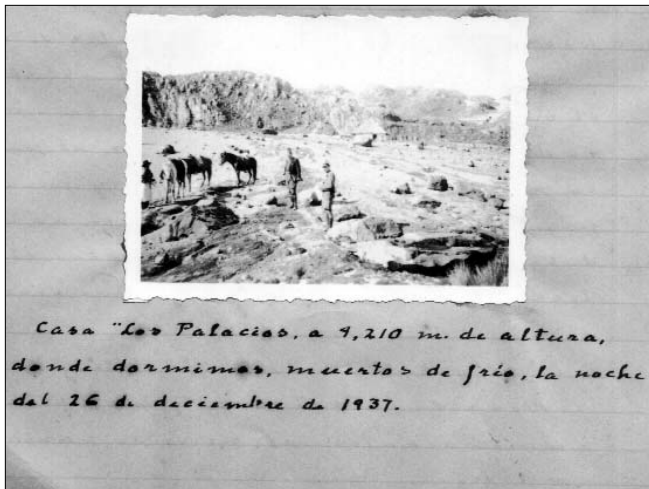 Casa "Los Palacios, a 4,210 m. de altura,
donde dormimos, muertos de frío, la noche
del 26 de diciembre de 1937.